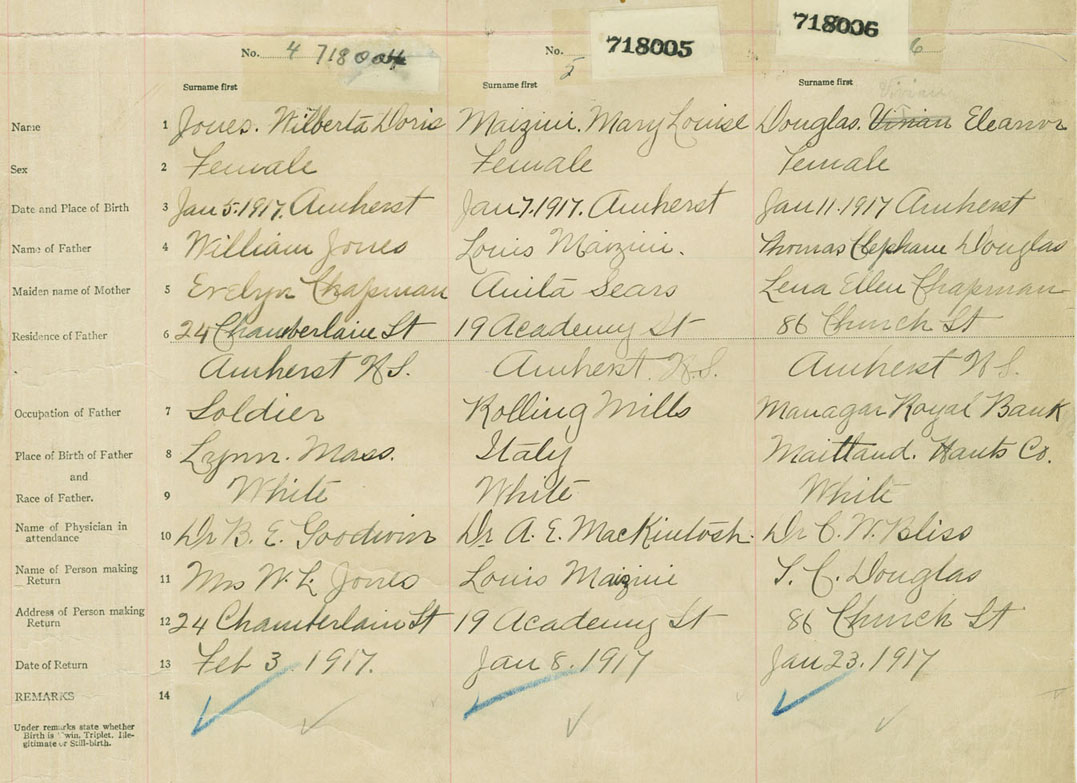 718006
No. 4 718004 No. 5 718005 6
Surname first Surname first Surname first
Name 1 Jones. Wilberta Doris Maizini. Mary Louise Douglas. Vivian Eleanor
Sex 2 Female Female Female
Date and Place of Birth 3 Jan 5.1917. Amherst Jan 7.1917. Amherst Jan 11.1917 Amherst
Name of Father 4 William Jones Louis Maizini. Thomas Clephane Douglas
Maiden name of Mother 5 Evelyn Chapman Anita Sears Lena Ellen Chapman
Residence of Father 6 24 Chamberlain St 19 Academy St 86 Church St
Amherst N.S. Amherst N.S. Amherst N.S.
Occupation of Father 7 Soldier Rolling Mills Managar Royal Bank
Place of Birth of Father 8 Lynn. Mass. Italy Maitland. Hants Co.
and
Race of Father. 9 White White White
Name of Physician in
attendance 10 Dr B. E. Goodwin Dr. A. E. MacKintosh. Dr C. W. Bliss
Name of Person making
Return 11 Mrs W. L. Jones Louis Maizini T. C. Douglas
Address of Person making
Return 12 24 Chamberlain St 19 Academy St 86 Church St
Date of Return 13 Feb 3. 1917. Jan 8. 1917 Jan 23. 1917
REMARKS 14
Under remarks state whether
Birth is Twin, Triplet. Ille-
gitimate or Still-birth.